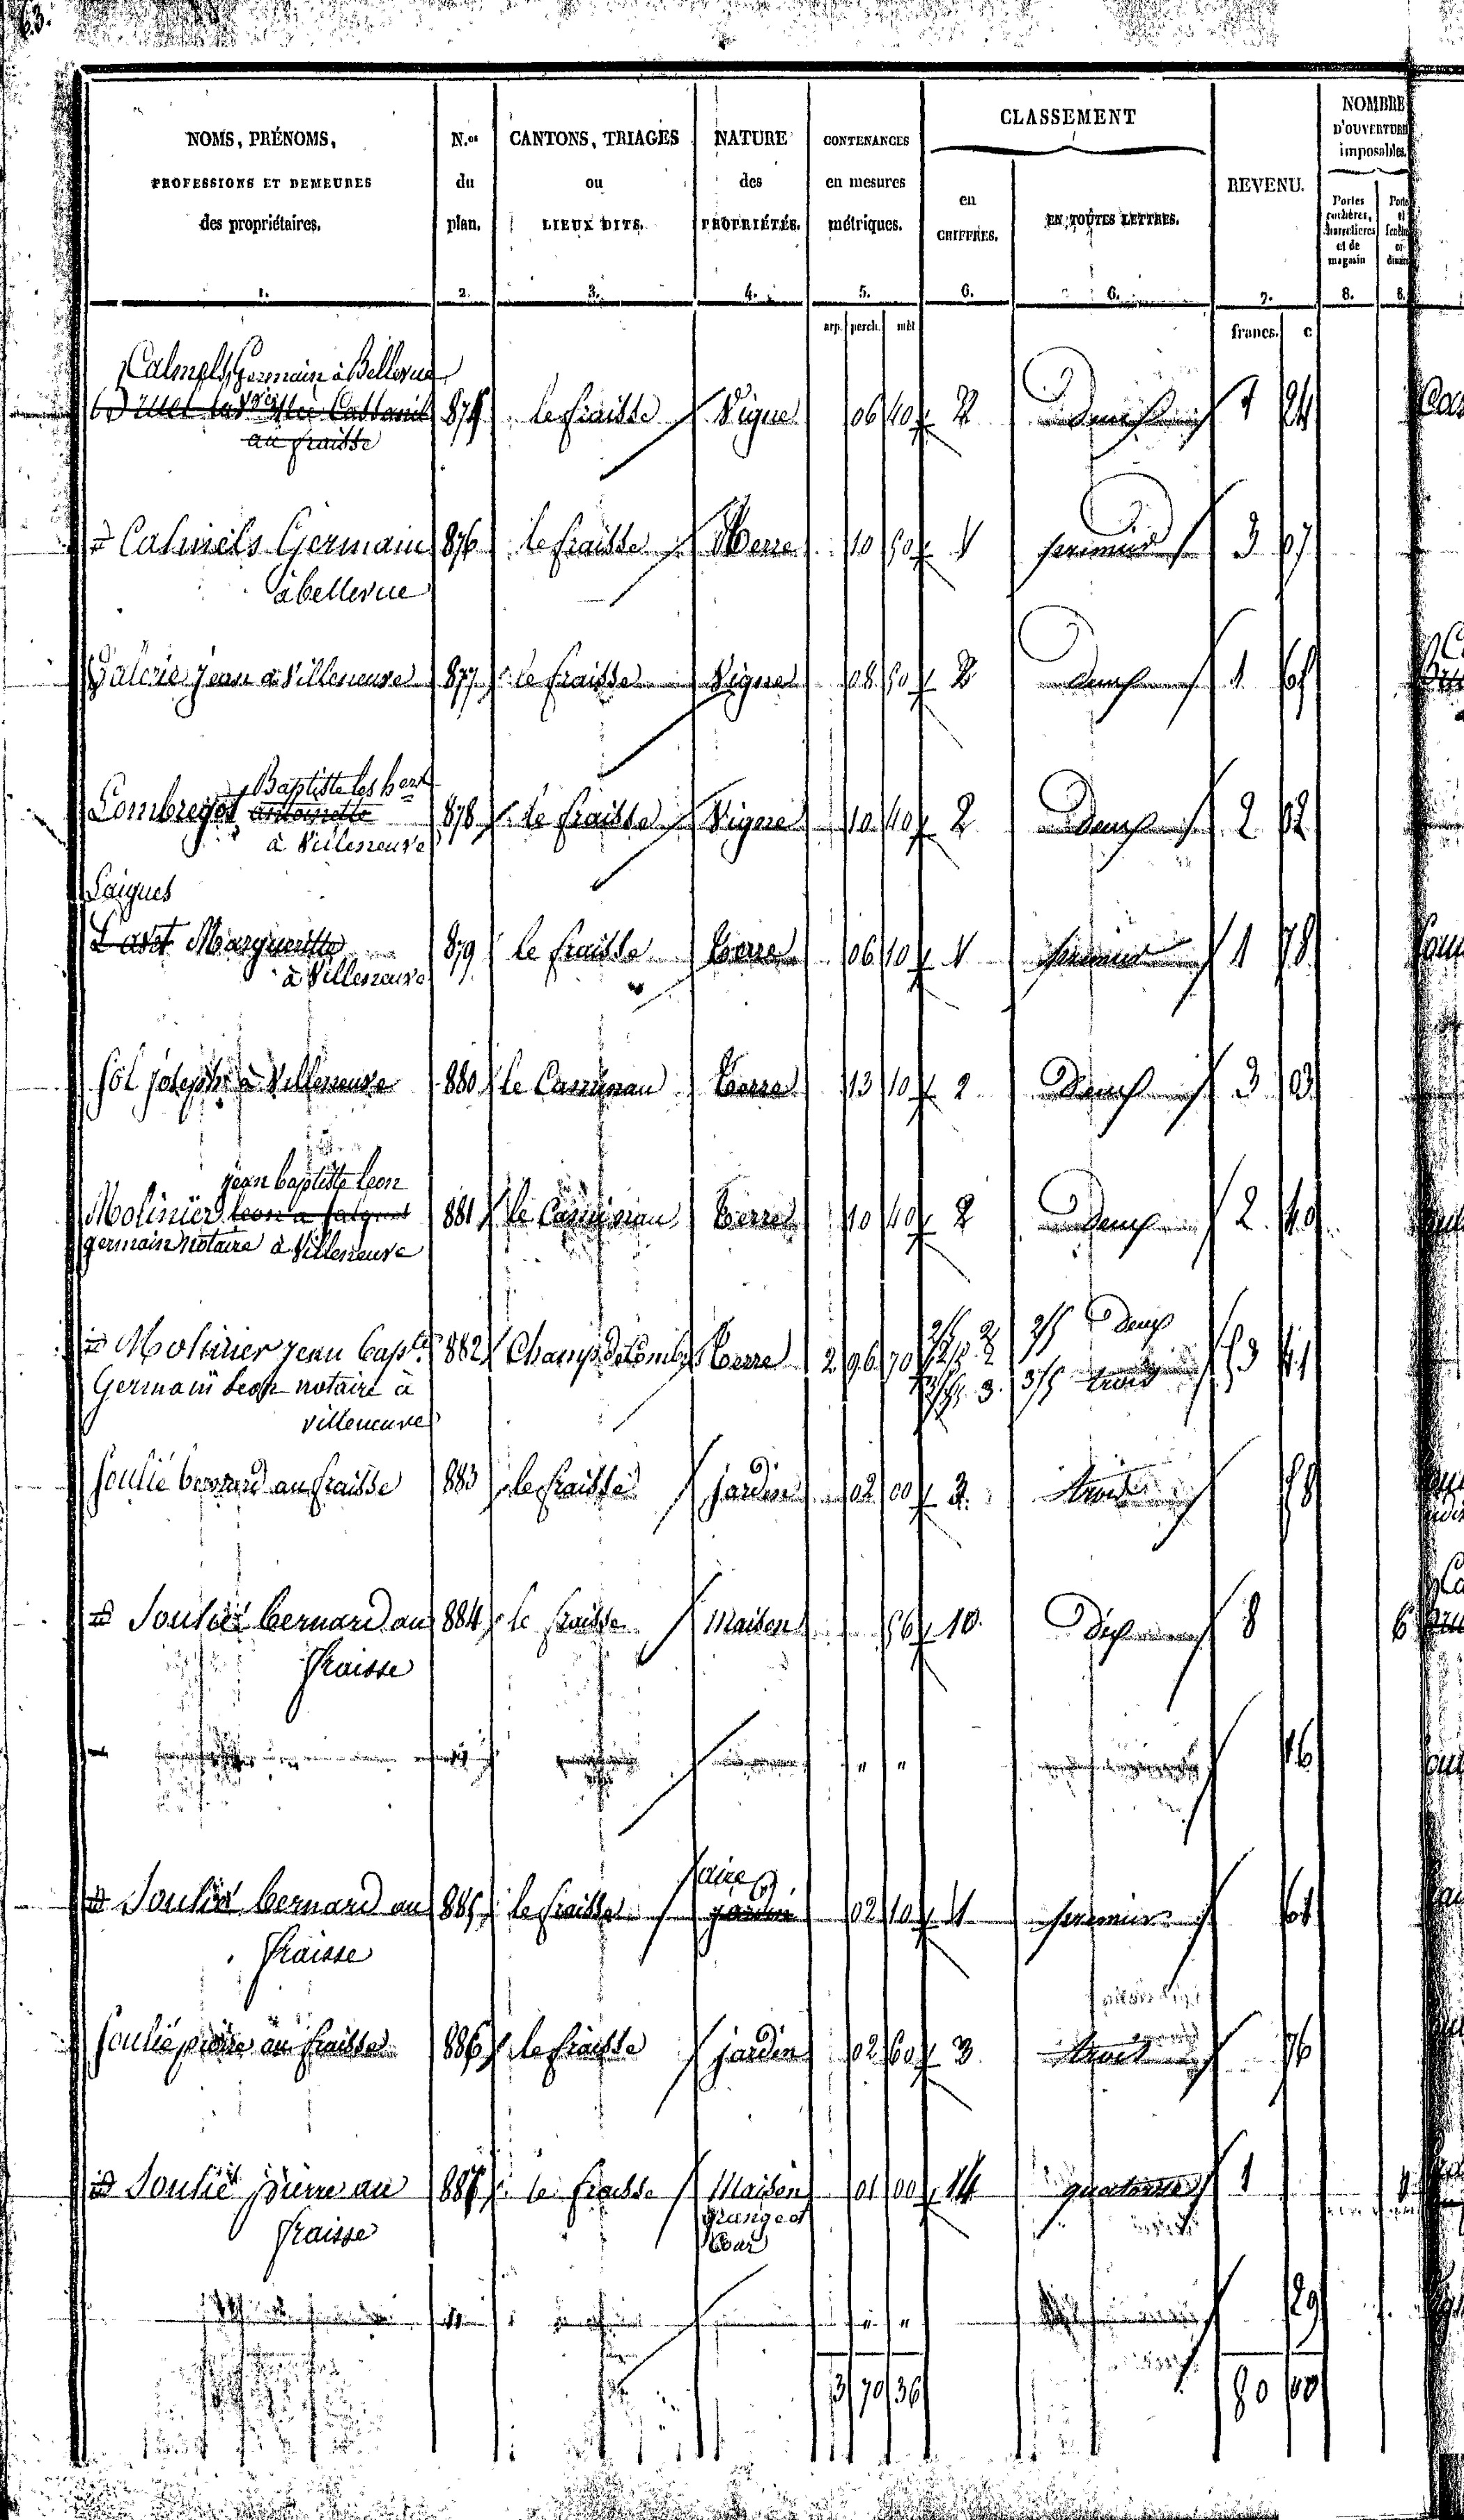 63.
NOMS, PRÉNOMS, PROFESSIONS ET DEMEURES des propriétaires. 1.
N.os du plan. 2.
CANTONS, TRIAGES ou LIEUX DITS. 3.
NATURE des PROPRIÉTÉS. 4.
CONTENANCES en mesures métriques. 5.
CLASSEMENT
en CHIFFRES. 6.
EN TOUTES LETTRES. 6.
REVENU. 7.
NOMBRE D'OUVERTURE imposables.
Portes cochères, charretières et de magasin 8.
8.
arp. perch. mèt francs. c
Calmels Germain à Bellevue
875 le fraisse Vigne 06 40 2 Deux 1 24
au fraisse
id Calmels Germain 876 le fraisse Terre 10 50 1 premier 3 07
à bellevue
Galerie jean à Villeneuve 877 le fraisse Vigne 08 50 2 deux 1 65
Baptiste les hers
Lombregot antoinette 878 le fraisse Vigne 10 40 2 Deux 2 02
à Villeneuve
Laigues
Marguerite 879 le fraisse terre 06 10 1 premier 1 78
à Villeneuve
Sol joseph à Villeneuve 880 le Terre 13 10 2 Deux 3 03
jean baptiste leon
Molinier 881 le Terre 10 40 2 deux 2 40
germain notaire à Villeneuve
id Molinier jean bapte 882 Champ de Terre 2 96 70 2/5 2 2/5 deux 53 41
Germain Leon notaire à 3/5 3. 3/5 trois
villeneuve
Soulié bernard au fraisse 883 le fraisse jardin 02 00 3. trois 58
id Soulié bernard au 884 le fraisse Maison 56 10. Dix 8 6
fraisse
" " 16
aire
id Soulié bernard au 885 le fraisse jardin 02 10 1 premier 61
fraisse
Soulié pierre au fraisse 886 le fraisse jardin 02 60 3 trois 76
id Soulié pierre au 887 le fraisse Maison 01 00 14 quatorze 1
fraisse grange et
" " 29
3 70 36 80 00